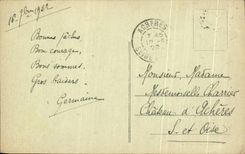 18 - 7bre 1922
Bonnes pêches
Bon courage,
Bons sommes.
Gros baisers.
Germaine
ACHÈRES
Monsieur, Madame
Mademoiselle Charrier
Château d'Achères
S. et Oise